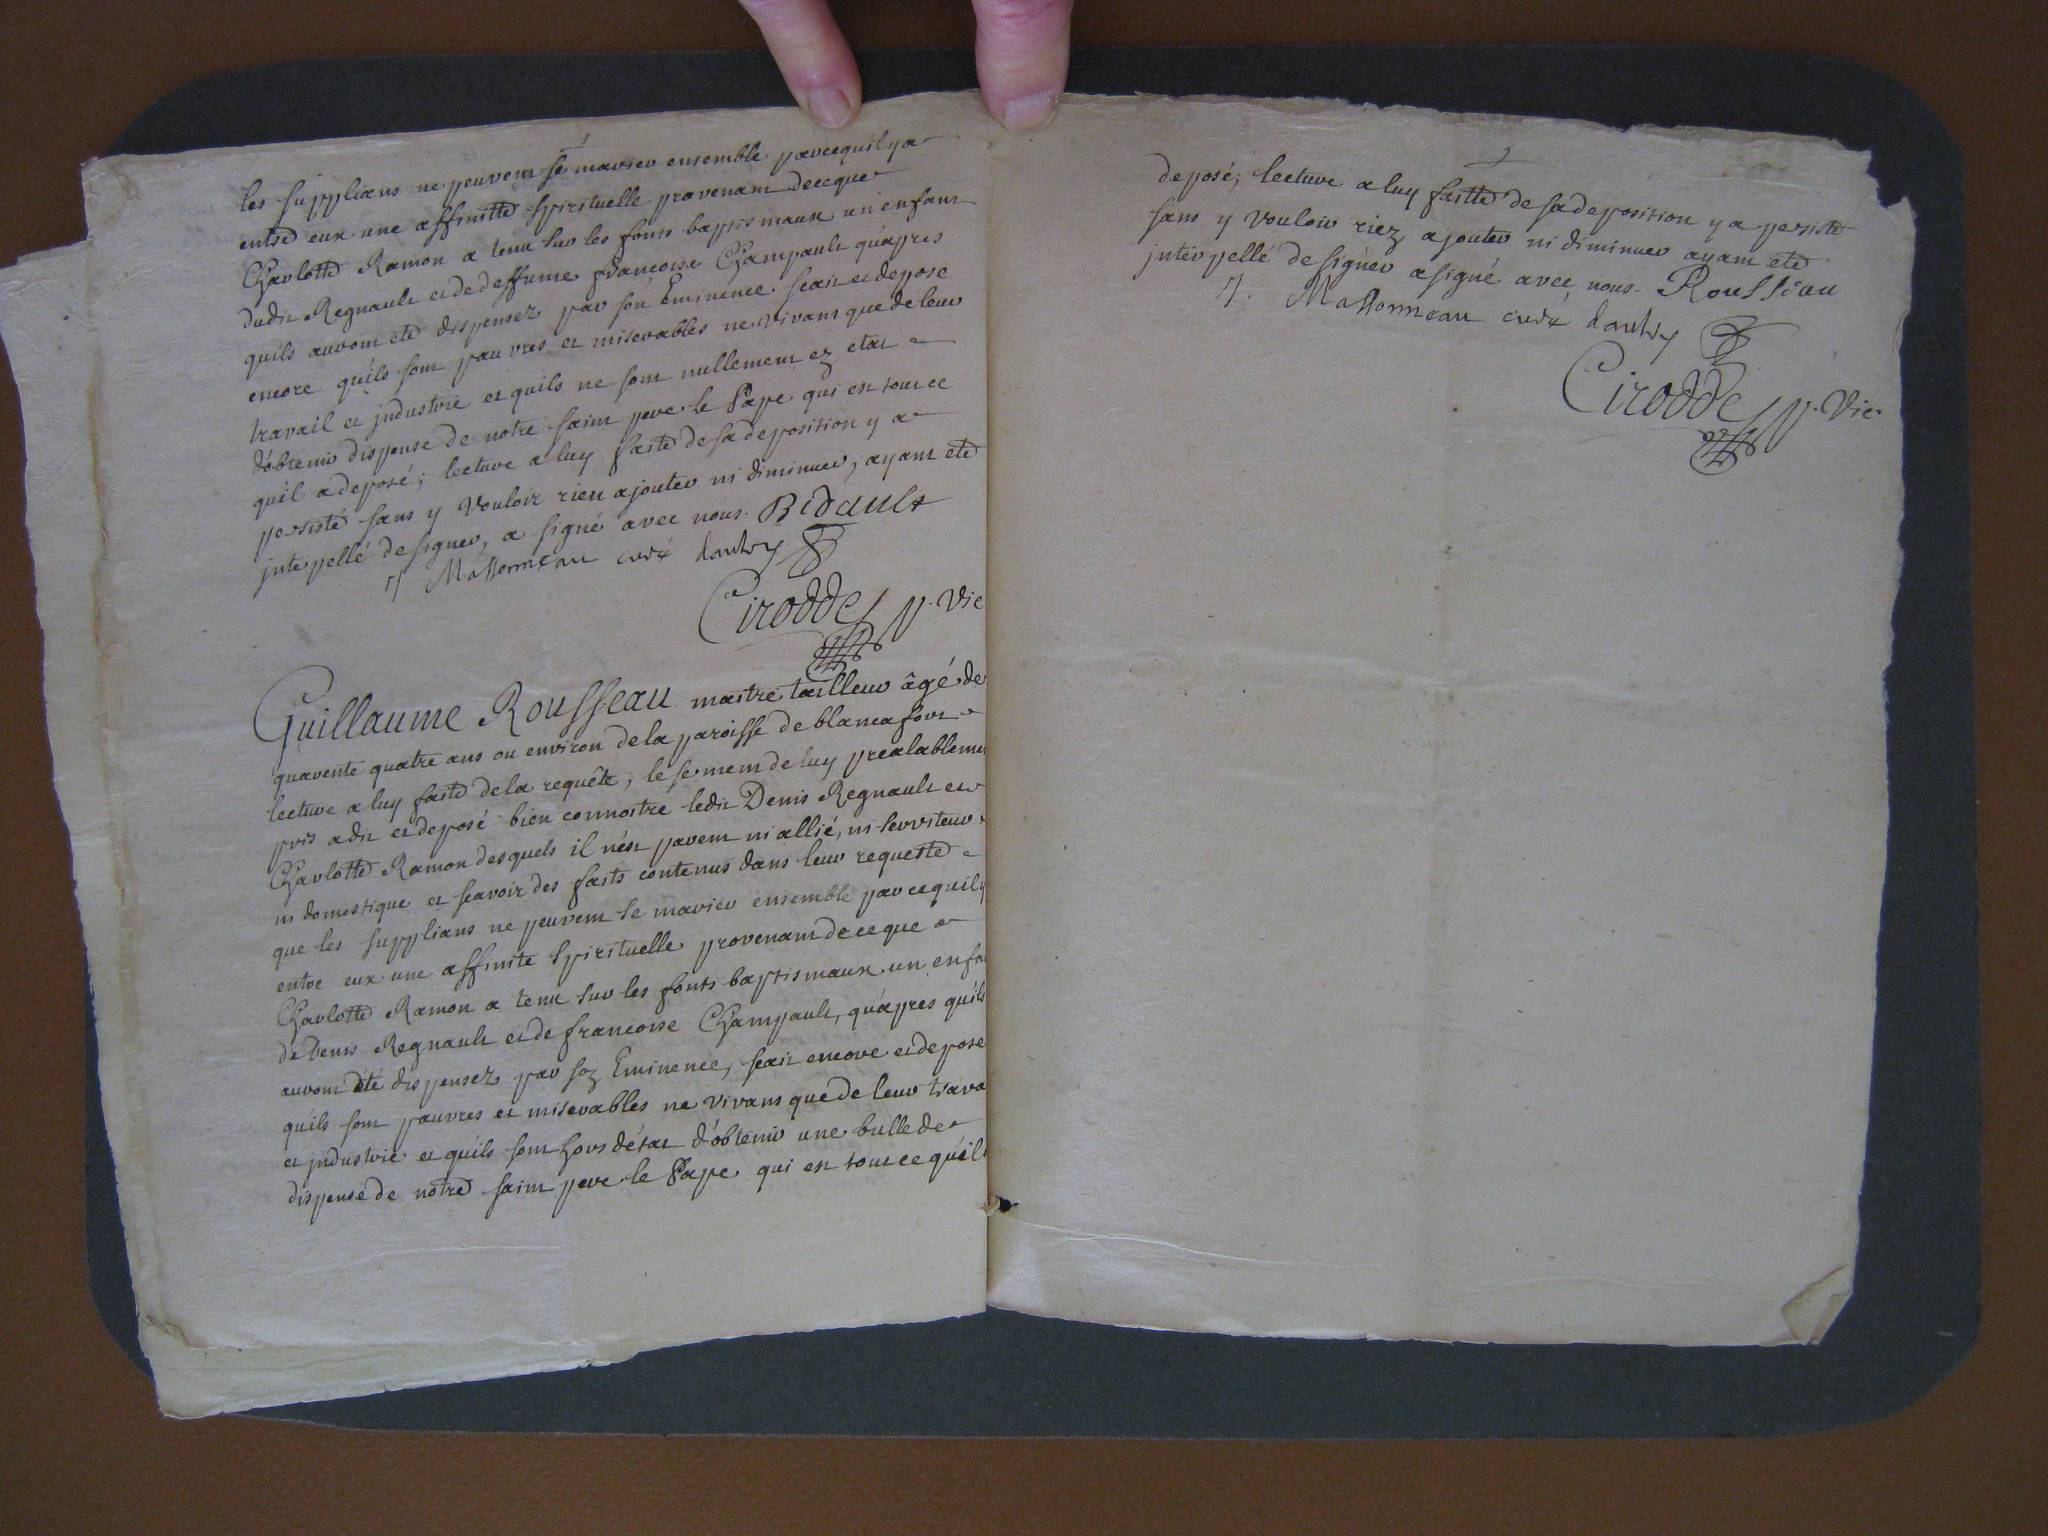 les supplians ne peuvent se marier ensemble parcequil y a
entre eux une affinitté spirituelle provenant de ce que
Charlotte Ramon a tenu sur les fonts baptismaux un enfant
dudit Regnault et de deffunte francoise Champault qu'apres
quils auront eté dispensez par son Eminence. scait et depose
encore quils sont pauvres et miserables ne vivans que de leur
travail et industrie et quils ne sont nullement ez etat
d'obtenir dispense de notre saint pere le Pape qui est tout ce
quil a deposé; lecture a luy faite de sa deposition y a
persisté sans y vouloir rien ajouter ni diminuer, ayant eté
interpellé de signer, a signé avec nous. Bidault
Massonneau curé dautry
Cirodde
Guillaume Rousseau maitre tailleur âgé de
quarente quatre ans ou environ de la paroisse de blancafort
lecture a luy faite de la requête, le serment de luy prealableme
pris a dit et deposé bien connoitre ledit Denis Regnault et
Charlotte Ramon desquels il n'est parent ni allié, ni serviteur
ni domestique et scavoir des faits contenus dans leur requeste
que les supplians ne peuvent se marier ensemble parcequil y
entre eux une affinite spirituelle provenant de ce que
Charlotte Ramon a tenu sur les fonts baptismaux un enfa
de Denis Regnault et de francoise Champault, qu'apres quils
auront eté dispensez par son Eminence, scait encore et depose
quils sont pauvres et miserables ne vivans que de leur trava
et industrie et quils sont hors d'état d'obtenir une bulle de
dispense de notre saint pere le Pape qui est tout ce qu'il
deposé; lecture a luy faitte de sa deposition y a persisté
sans y vouloir rien ajouter ni diminuer ayant eté
interpellé de signer a signé avec nous. Rousseau
Massonneau curé dautry
Cirodde